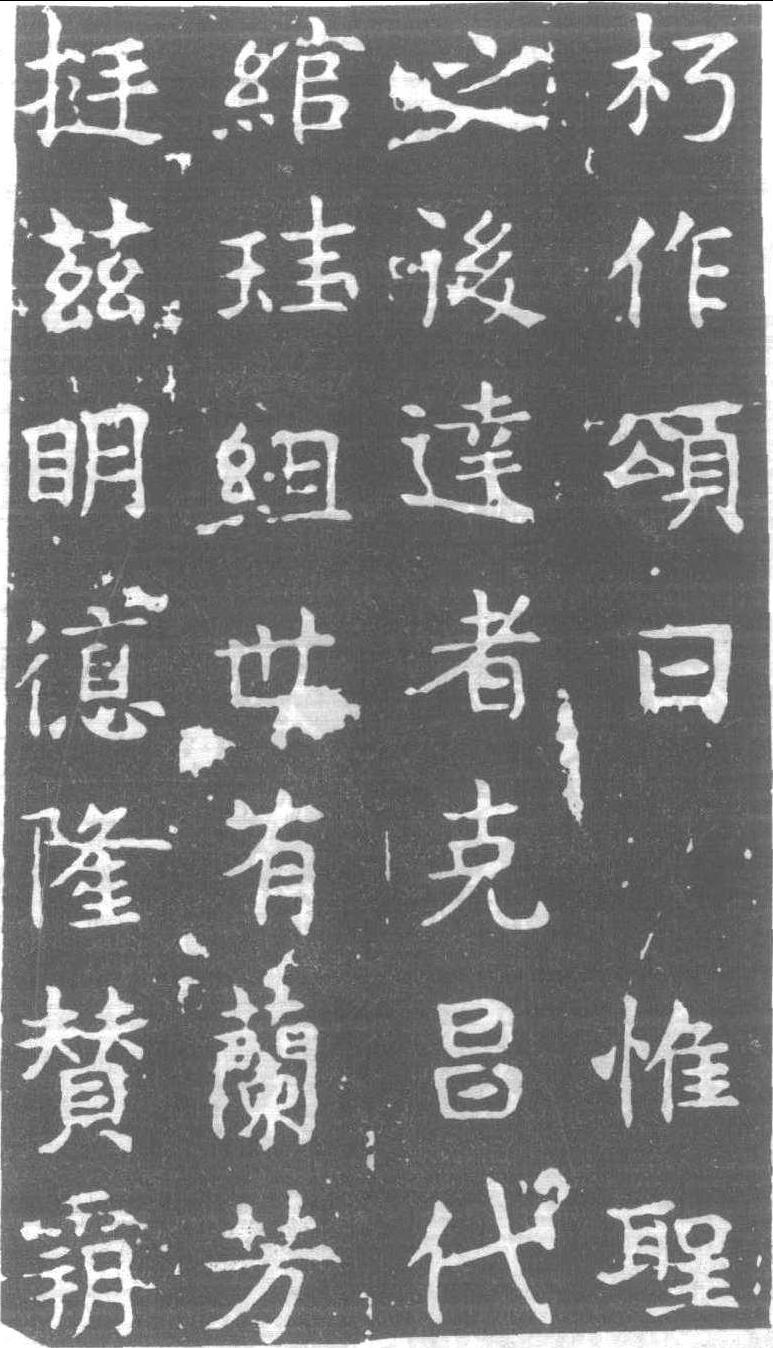 朽作頌曰　惟聖
之後達者克昌代
綰珪組世有蘭芳
挺茲明德隆賛霸